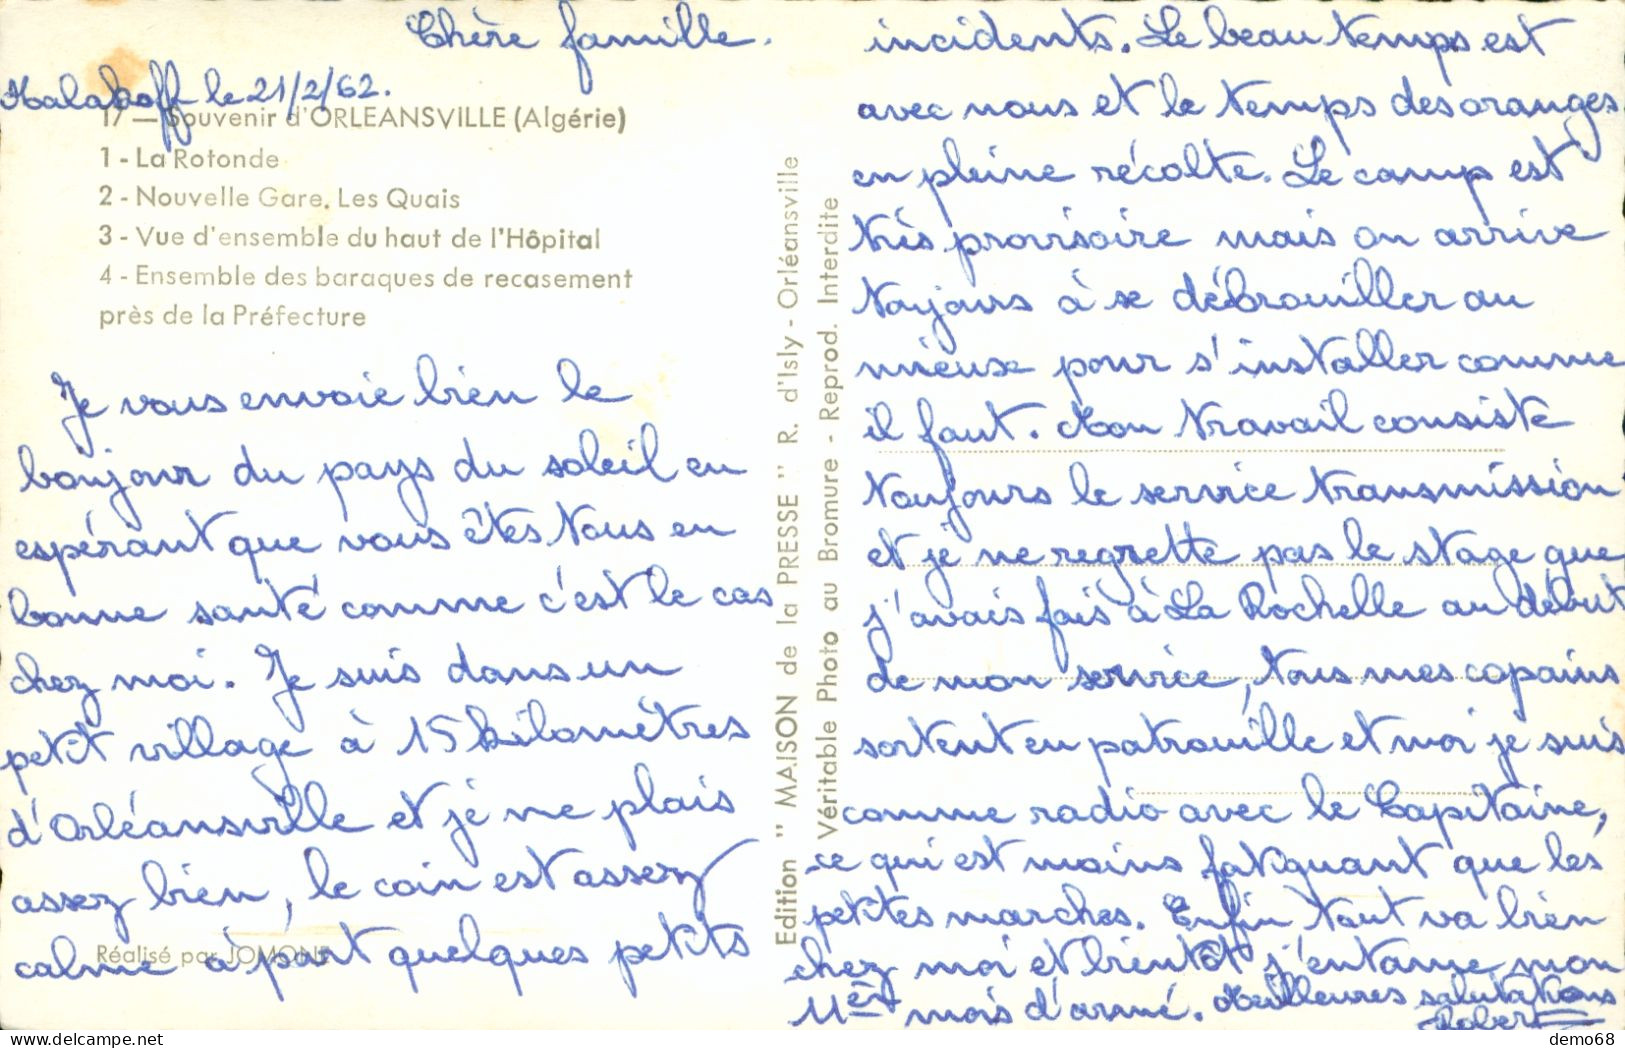 Chère famille.
Malakoff le 21/2/62.
17 — Souvenir d'ORLEANSVILLE (Algérie)
1 - La Rotonde
2 - Nouvelle Gare. Les Quais
3 - Vue d'ensemble du haut de l'Hôpital
4 - Ensemble des baraques de recasement
près de la Préfecture
Je vous envoie bien le
bonjour du pays du soleil en
espérant que vous êtes tous en
bonne santé comme c'est le cas
chez moi. Je suis dans un
petit village à 15 kilomètres
d'Orléansville et je me plais
assez bien, le coin est assez
calme à part quelques petits
Réalisé par JOMONE
Edition " MAISON de la PRESSE " R. d'Isly - Orléansville
Véritable Photo au Bromure - Reprod. Interdite
incidents. Le beau temps est
avec nous et le temps des oranges
en pleine récolte. Le camp est
très provisoire mais on arrive
toujours à se débrouiller au
mieux pour s'installer comme
il faut. Mon travail consiste
toujours le service transmission
et je ne regrette pas le stage que
j'avais fais à La Rochelle au début
de mon service, tous mes copains
sortent en patrouille et moi je suis
comme radio avec le Capitaine,
ce qui est moins fatiguant que les
petites marches. Enfin tout va bien
chez moi et bientôt j'entame mon
11er mois d'armé. Meilleures salutations
Robert
demo68